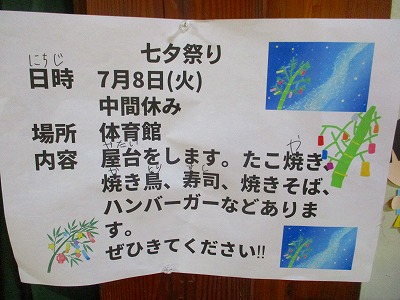 七夕祭り
にちじ
日時 7月8日(火)
中間休み
場所 体育館
やたい や
内容 屋台をします。たこ焼き、
や とり すし
焼き鳥、寿司、焼きそば、
ハンバーガーなどありま
す。
ぜひきてください!!